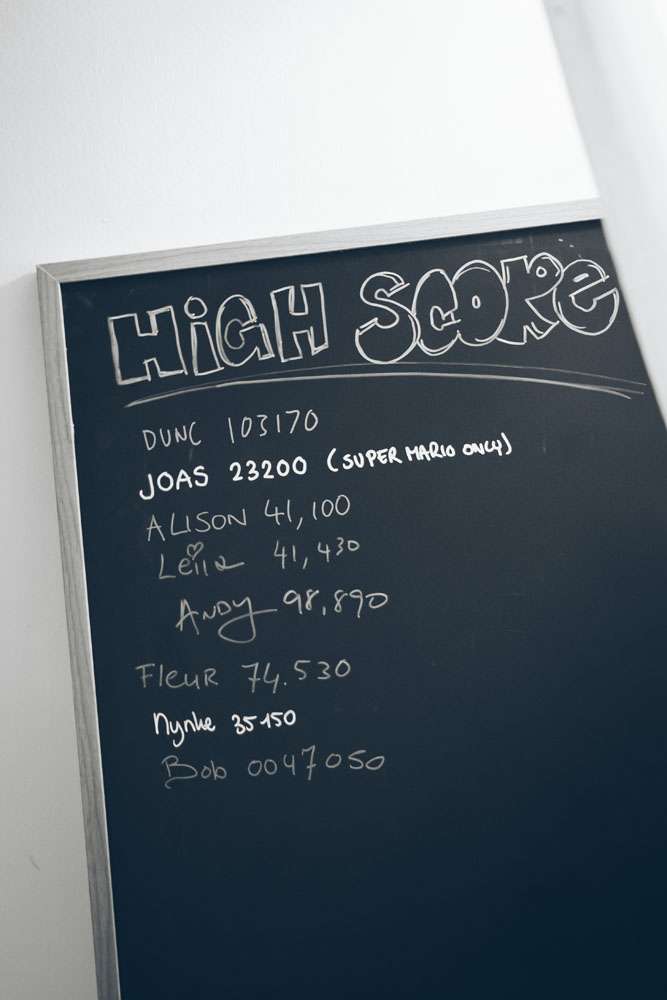 HiGH SCORe
DUNC 103170
JOAS 23200 (SUPER MARIO ONLY)
ALISON 41,100
Leila 41,430
ANDY 98,890
FleuR 74.530
Nynke 35150
Bob 0047050